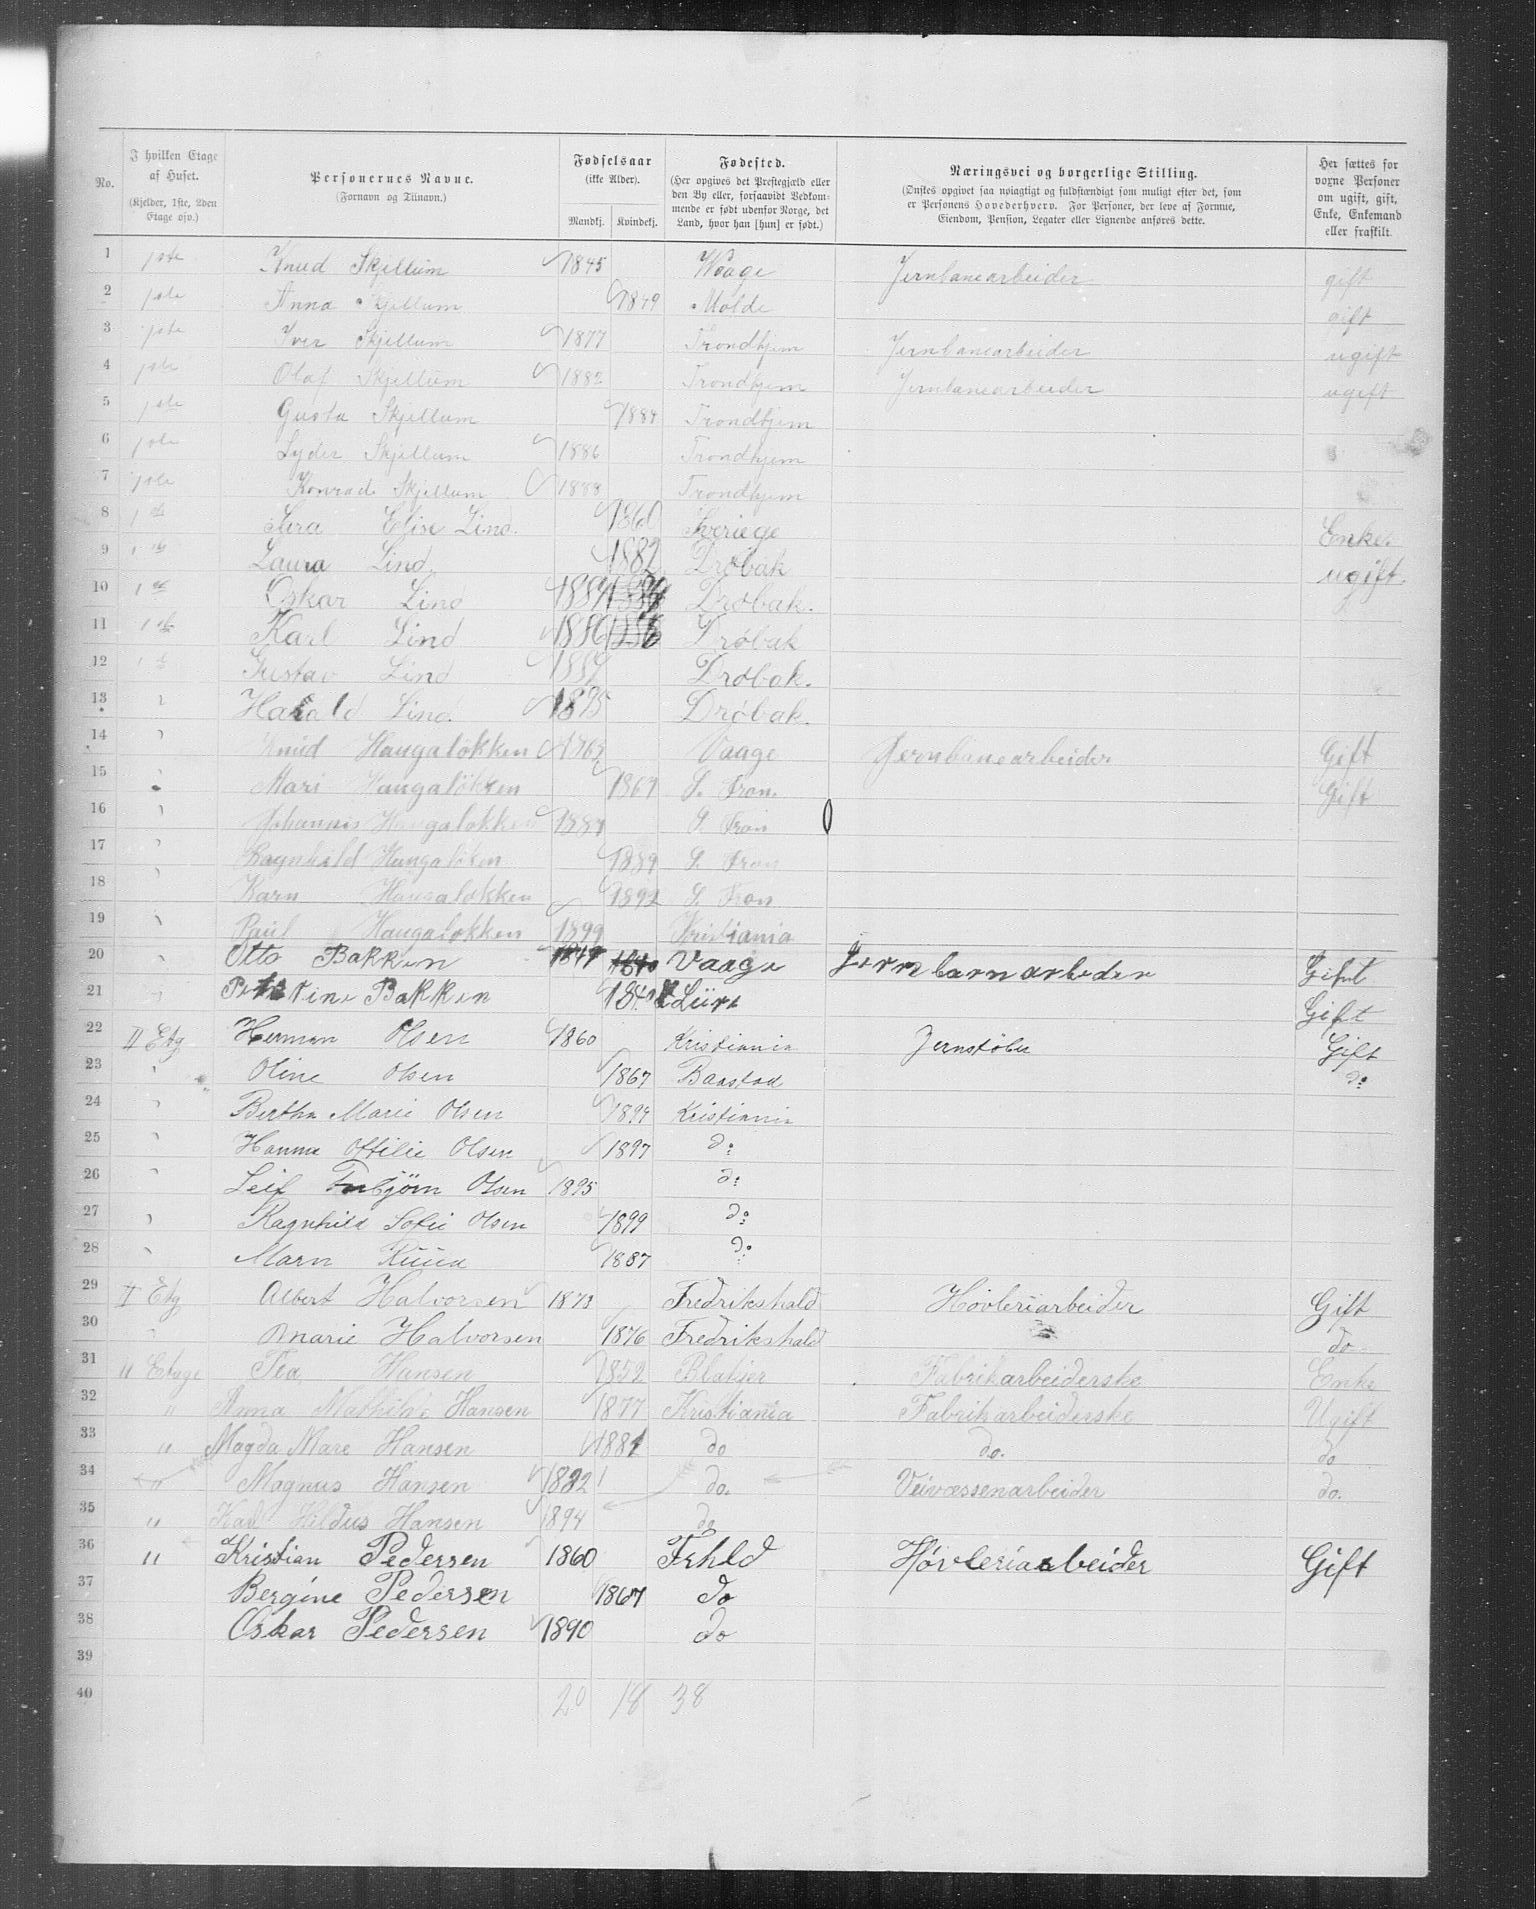 No. | I hvilken Etage af Huset. (Kjelder, 1ste, 2den Etage osv.) | Personernes Navne. (Fornavn og Tilnavn.) | Fødselsaar (ikke Alder). Mandkj. Kvindekj. | Fødested. (Her opgives det Prestegjæld eller den By eller, forsaavidt Vedkommende er født udenfor Norge, det Land, hvor han [hun] er født.) | Næringsvei og borgerlige Stilling. (Ønskes opgivet saa nøiagtigt og fuldstændigt som muligt efter det, som er Personens Hovederhverv. For Personer, der leve af Formue, Eiendom, Pension, Legater eller Lignende anføres dette.) | Her sættes for voxne Personer om ugift, gift, Enke, Enkemand eller fraskilt.
1 1ste Knud Skjellum 1845 Waage Jernbanearbeider gift
2 1ste Anna Skjellum 1849 Molde gift
3 1ste Iver Skjellum 1877 Trondhjem Jernbanearbeider ugift
4 1ste Olaf Skjellum 1882 Trondhjem Jernbanearbeider ugift
5 1ste Gusta Skjellum 1884 Trondhjem
6 1ste Lyder Skjellum 1886 Trondhjem
7 1ste Konrad Skjellum 1888 Trondhjem
8 1ste Elise Lind. 1860 Sveriege Enke.
9 1ste Laura Lind. 1882 Drøbak ugift.
10 1ste Oskar Lind 1884 Drøbak.
11 1ste Karl Lind 1886 Drøbak
12 1ste Gustav Lind 1889 Drøbak.
13 " Harald Lind. 1895 Drøbak.
14 " Knud Haugaløkken Vaage Jernbanearbeider Gift
15 " Mari Haugaløkken 1867 S. Fron. Gift
16 " Johannes Haugaløkken 1887 S. Fron
17 " Ragnhild Haugaløken 1889 S. Fron
18 " Karn Haugaløkken 1892 S. Fron
19 " Paul Haugaløkken 1899 Kristiania
20 " Otto Bakken Vaage Jernbarnarbeder Gift
21 " Bakken Gift
22 II Etg Herman Olsen 1860 Kristiania Jernstøber Gift
23 " Oline Olsen 1867 Baastad do
24 " Bertha Marie Olsen 1894 Kristiania
25 " Hanna Ottilie Olsen 1897 do
26 " Leif Olsen 1895 do
27 " Ragnhild Sofie Olsen 1899 do
28 " Marn 1887 do
29 II Etg Albert Halvorsen 1873 Fredrikshald Høvleriarbeider Gift
30 " Marie Halvorsen 1876 Fredrikshald do
31 II Etage Tea Hansen 1852 Fabrikarbeiderske Enke
32 " Anna Mathilde Hansen 1877 Kristiania Fabrikarbeiderske Ugift
33 " Magda Mare Hansen 1881 do do. do
34 " Magnus Hansen 1882 do. Veivæssenarbeider do.
35 " Karl Hildus Hansen 1894 do
36 " Kristian Pedersen 1860 Frhld Høvleriarbeider Gift
37 Bergine Pedersen 1867 do
38 Oskar Pedersen 1890 do
39
40 20 18 38